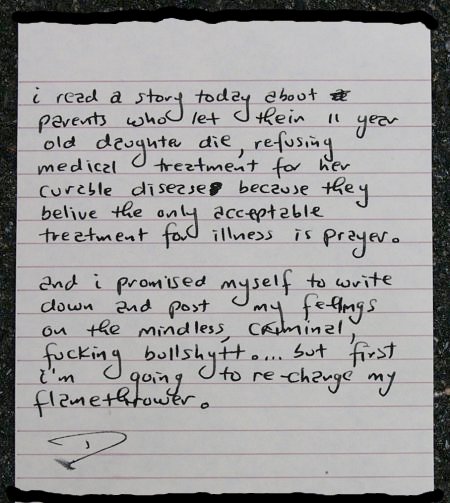 i read a story today about
parents who let their 11 year
old daughter die, refusing
medical treatment for her
curable disease because they
belive the only acceptable
treatment for illness is prayer.
and i promised myself to write
down and post my feelings
on the mindless, criminal,
fucking bullshytt.... but first
i'm going to re-charge my
flamethrower.